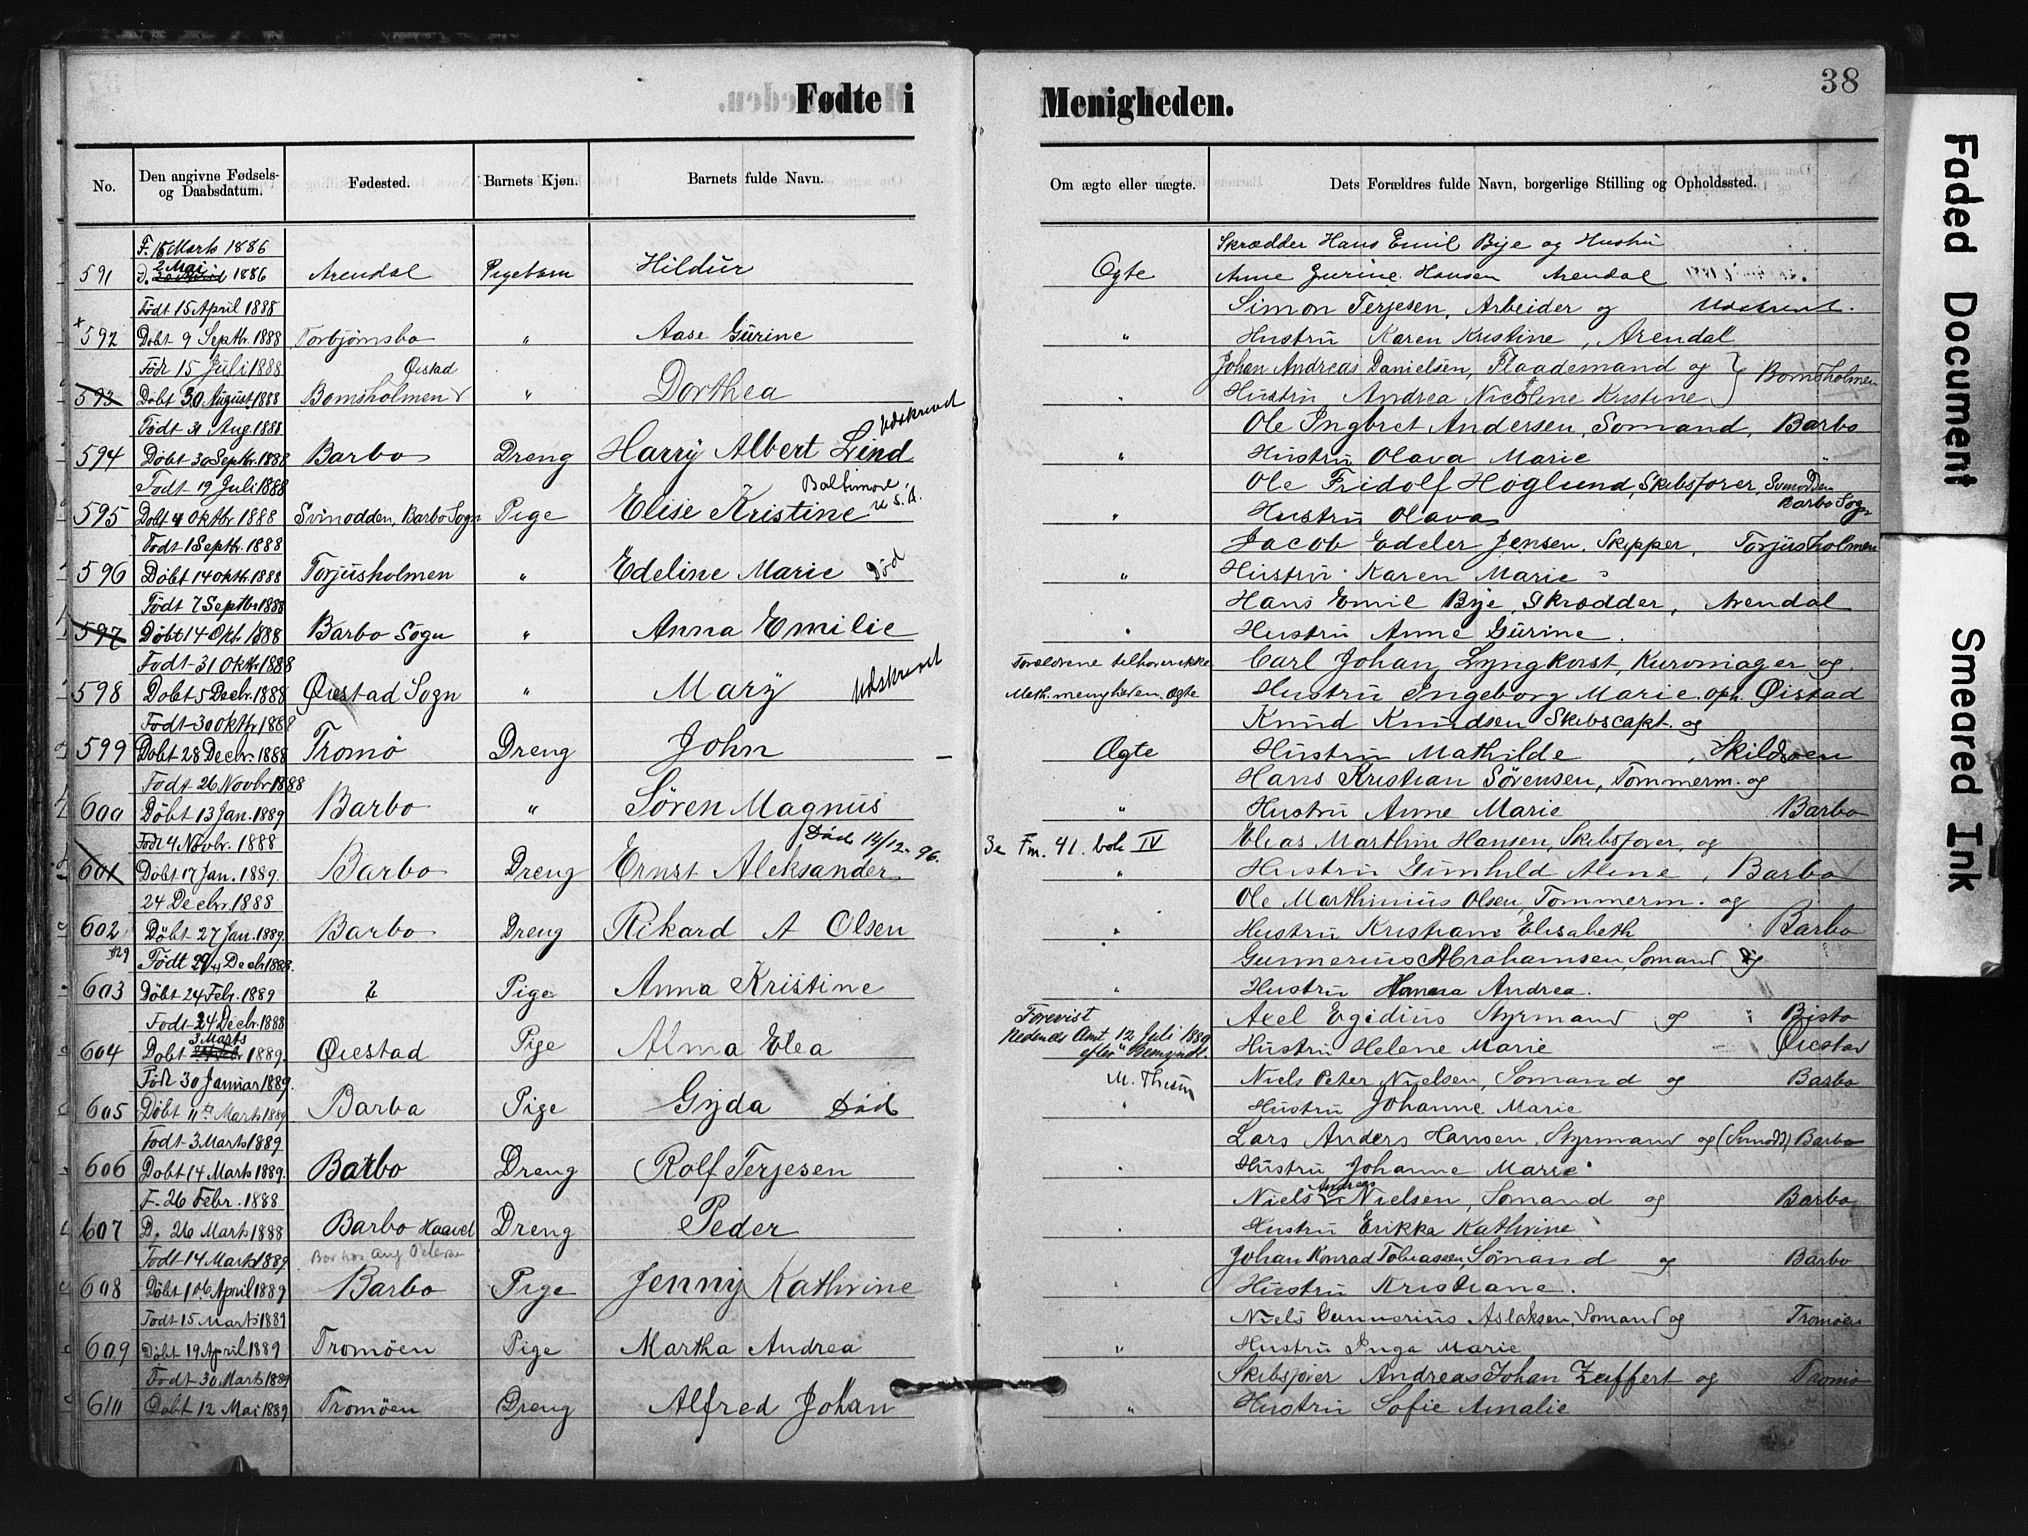 38
Fødte i Menigheden.
No. Den angivne Fødsels- og Daabsdatum. Fødested. Barnets Kjøn. Barnets fulde Navn. Om ægte eller uægte. Dets Forældres fulde Navn, borgerlige Stilling og Opholdssted.
F. 15 Marts 1886 Skrædder Hans Emil Bye og Hustru
591 D. 2 Mai 1886 Arendal Pigebarn Hildur Ægte Anne Gurine Hansen Arendal
Født 15 April 1888 Simon Terjesen, Arbeider og Udskrevet.
x 592 Døbt 9 Septbr. 1888 Torbjørnsbo " Aase Gurine " Hustru Karen Kristine, Arendal
Født 15 Juli 1888 Øistad Johan Andreas Danielsen, Flaademand og
593 Døbt 30 August 1888 Bomsholmen " Dorthea " Hustru Andrea Nicoline Kristine } Bomsholmen
Født 31 Aug. 1888 Udskrevet Ole Ingbret Andersen, Sømand, Barbo
594 Døbt 30 Septbr. 1888 Barbo Dreng Harry Albert Lind " Hustru Olava Marie "
Født 19 Juli 1888 Baltimore, U.S.A. Ole Fridolf Høglund, Skibsfører, Svinodden
595 Døbt 4 Oktbr. 1888 Svinodden, Barbo Sogn Pige Elise Kristine " Hustru Olava Barbo Sogn
Født 1 Septbr. 1888 Jacob Edeler Jensen, Skipper, Torjusholmen
596 Døbt 14 Oktbr. 1888 Torjusholmen " Edeline Marie Død " Hustru Karen Marie "
Født 7 Septbr. 1888 Hans Emil Bye, Skrædder, Arendal
597 Døbt 14 Okt. 1888 Barbo Sogn " Anna Emilie " Hustru Anne Gurine.
Født 31 Oktbr. 1888 Forældrene tilhører ikke Carl Johan Lyngkvist, Kurvmager og
598 Døbt 5 Decbr. 1888 Øiestad Sogn " Mary Udskrevet Meth. menigheden. Ægte Hustru Ingeborg Marie. oph. Øistad
Født 30 Oktbr. 1888 Knud Knudsen Skibscapt. og
599 Døbt 28 Decbr. 1888 Tromø Dreng John — Ægte Hustru Mathilde , Skildsøen
Født 26 Novbr. 1888 Hans Kristian Sørensen, Tømmerm. og
600 Døbt 13 Jan. 1889 Barbo " Søren Magnus " Hustru Anne Marie Barbo
Født 4 Novbr. 1888 Død 14/12-96. Se Fm. 41. bok IV Elias Marthin Hansen, Skibsfører, og
601 Døbt 17 Jan. 1889. Barbo Dreng Ernst Aleksander " Hustru Gunhild Aline, Barbo
24 Decbr. 1888 Ole Marthinius Olsen, Tømmerm. og
602 Døbt 27 Jan. 1889. Barbo Dreng Rikard A Olsen " Hustru Kristiane Elisabeth Barbo
Født 29 Decbr. 1888. Gunnerius Abrahamsen, Sømand og
603 Døbt 24 Febr. 1889 Pige Anna Kristine " Hustru Andrea.
Født 24 Decbr. 1888 Forevist Axel Egidius Styrmand og
604 Døbt 3 Marts 1889. Øiestad Pige Alma Elea Nedenes Amt 12 Juli 1889 Hustru Helene Marie Øiestad
Født 30 Januar 1889. Niels Peter Nielsen, Sømand og Barbo
605 Døbt 11te Marts 1889 Barbo Pige Gyda Død " Hustru Johanne Marie
Født 3 Marts 1889 Lars Anders Hansen, Styrmand og (Svinodd) Barbo
606 Døbt 14 Marts 1889. Barbo Dreng Rolf Terjesen " Hustru Johanne Marie
F. 26 Febr. 1888 Niels Andreas Nielsen, Sømand og Barbo
607 D. 26 Marts 1888 Barbo Haavet Dreng Peder " Hustru Erikka Kathrine
Født 14 Marts 1889 Bor hos Aug Petersen Johan Konrad Tobiassen, Sømand og Barbo
608 Døbt 106 April 1889 Barbo Pige Jenny Kathrine " Hustru Kristiane.
Født 15 Marts 1889 Niels Gunnerius Aslaksen, Sømand og Tromøen
609 Døbt 19 April 1889 Tromøen Pige Martha Andrea " Hustru Inga Marie
Født 30 Marts 1889 Skibsfører Andreas Johan Zeiffert og Tromø
610 Døbt 12 Mai 1889 Tromøen Dreng Alfred Johan " Hustru Sofie Amalie
Faded Document
Smeared Ink